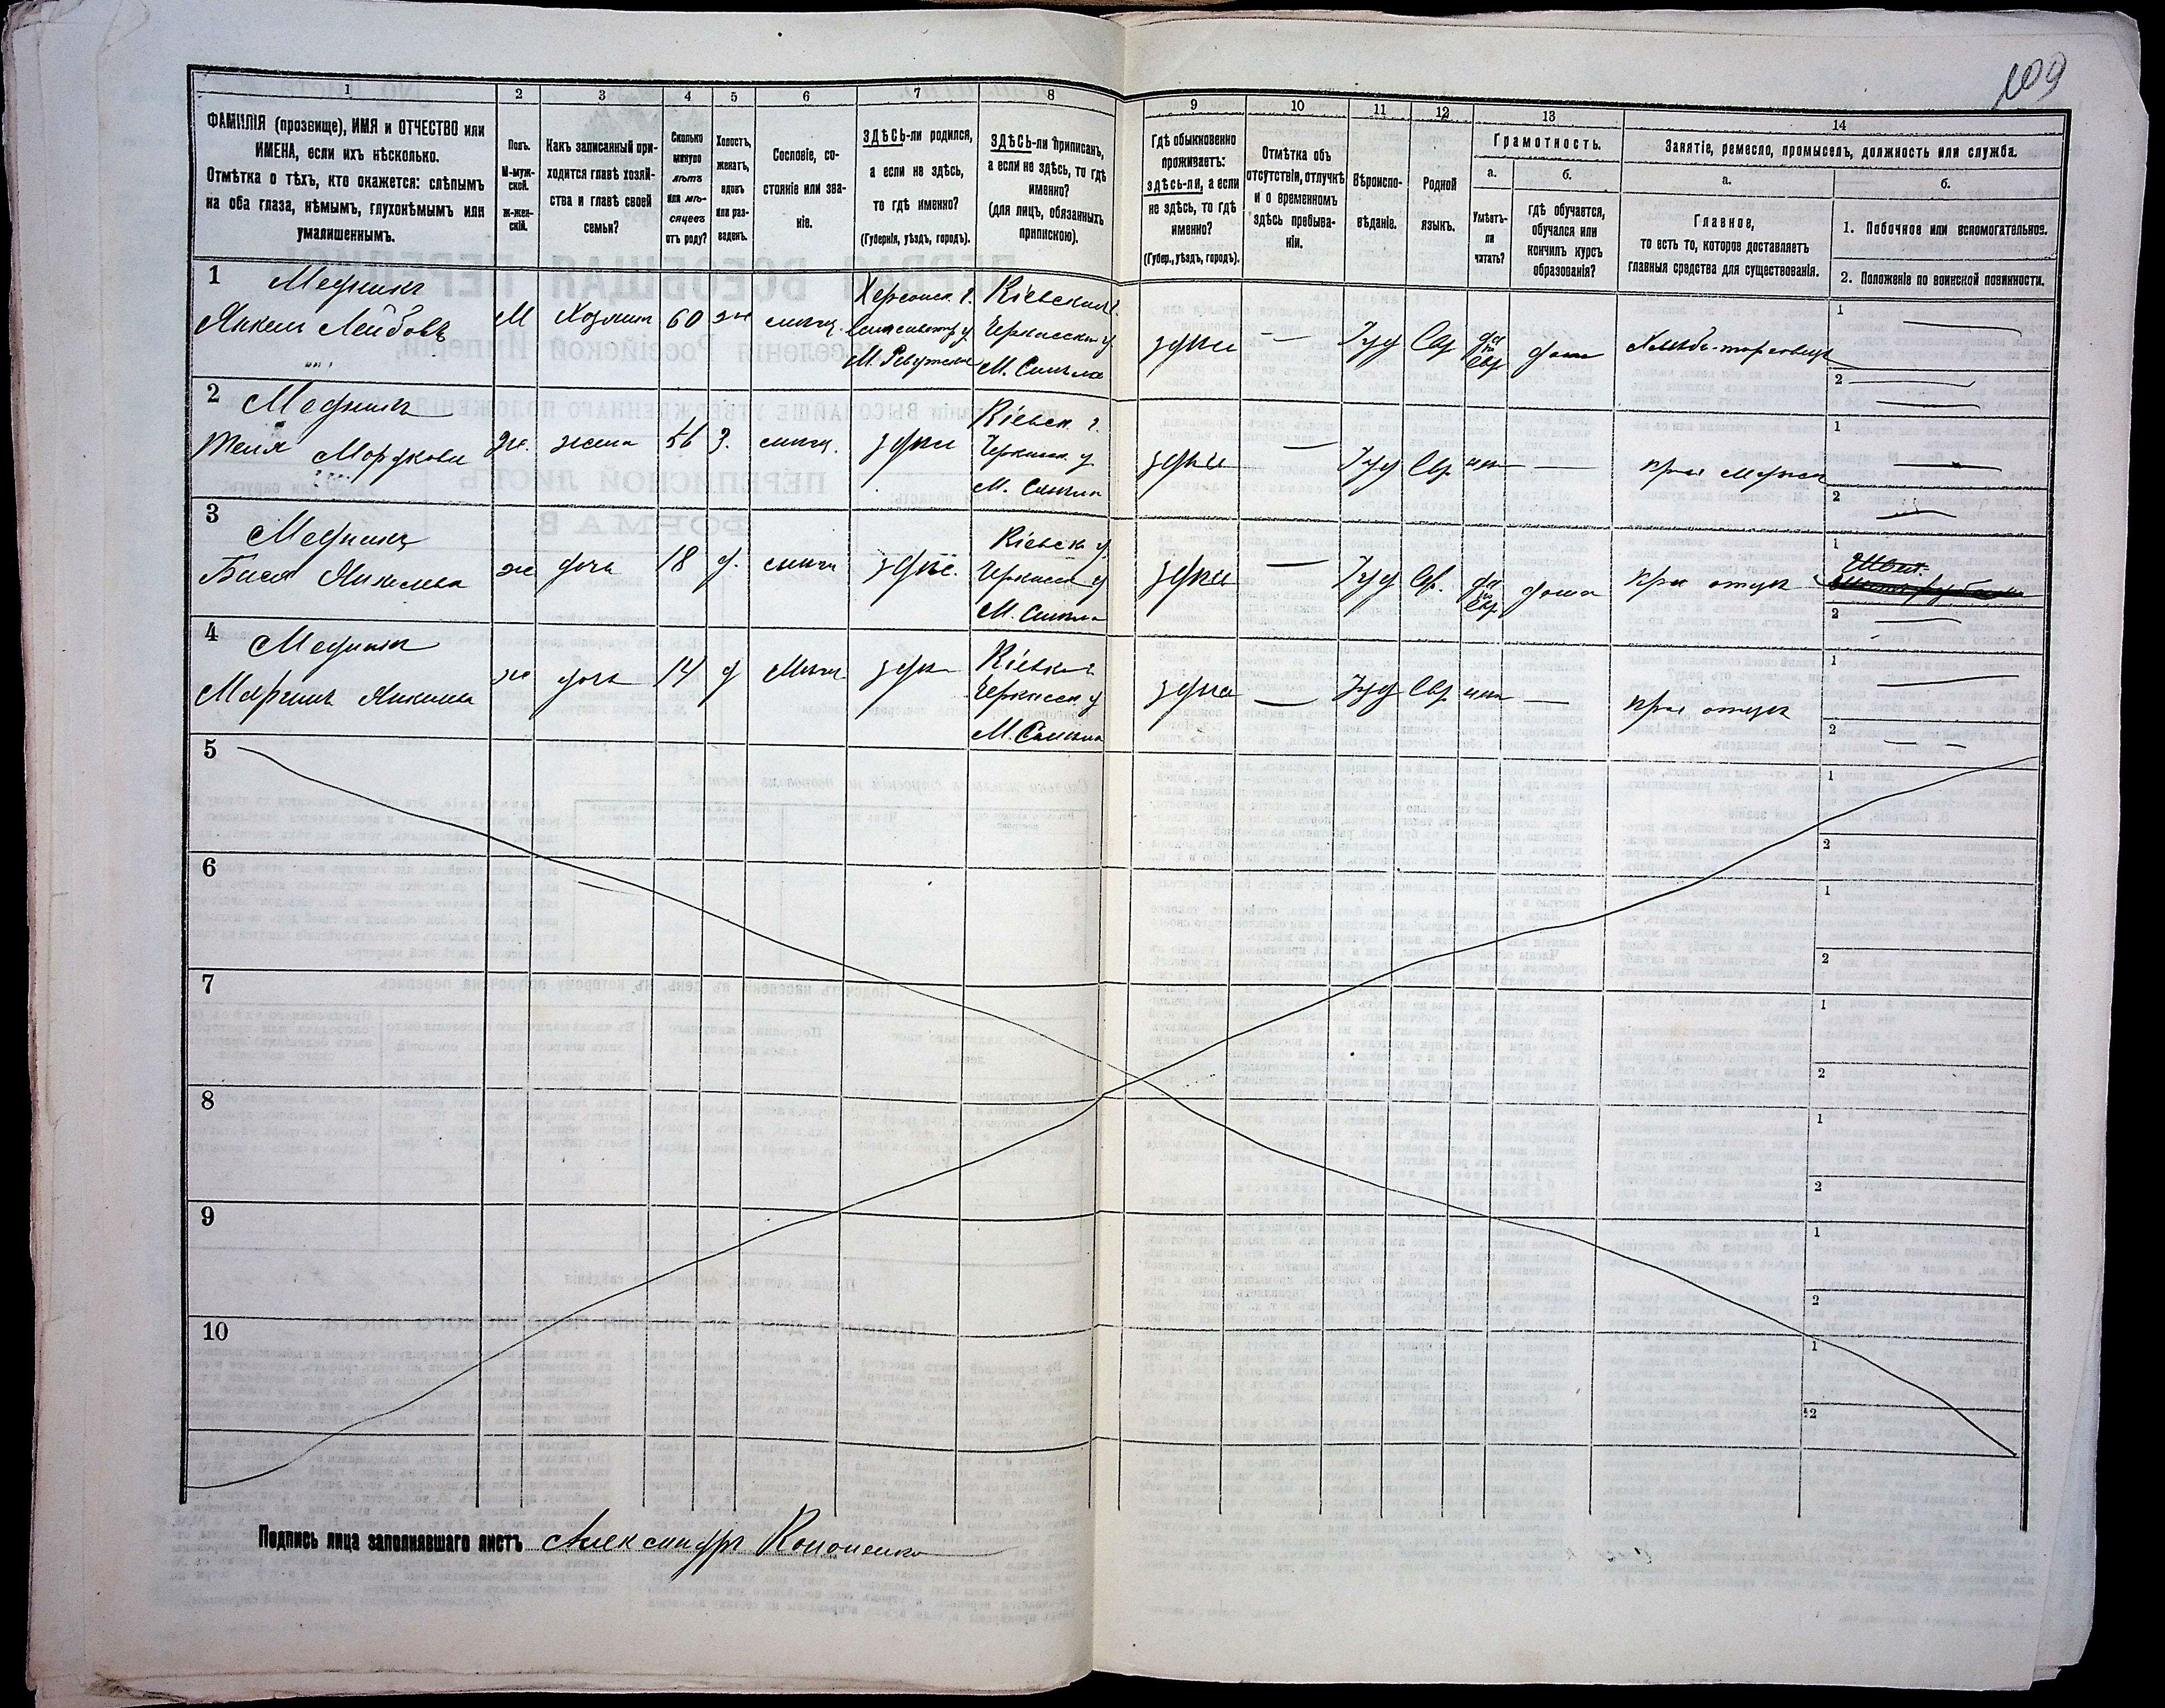 109
1 2 3 4 5 6 7 8 9 10 11 12 13 14
ФАМИЛІЯ (прозвище), ИМЯ и ОТЧЕСТВО или
ИМЕНА, если ихъ нѣсколько.
Отмѣтка о тѣхъ, кто окажется: слѣпымъ
на оба глаза, нѣмымъ, глухонѣмымъ или
умалишеннымъ.
Полъ.
М-муж-
ской.
Ж-жен-
скій.
Какъ записанный при-
ходится главѣ хозяй-
ства и главѣ своей
семьи?
Сколько
минуло
лѣтъ
или мѣ-
сяцевъ
отъ роду?
Холостъ,
женатъ,
вдовъ
или раз-
веденъ.
Сословіе, со-
стояніе или зва-
ніе.
ЗДѢСЬ-ли родился,
а если не здѣсь,
то гдѣ именно?
(Губернія, уѣздъ, городъ).
ЗДѢСЬ-ли приписанъ,
а если не здѣсь, то гдѣ
именно?
(для лицъ, обязанныхъ
припискою).
Гдѣ обыкновенно
проживаетъ:
здѣсь-ли, а если
не здѣсь, то гдѣ
именно?
(Губер., уѣздъ, городъ).
Отмѣтка объ
отсутствіи, отлучкѣ
и о временномъ
здѣсь пребыва-
ніи.
Вѣроиспо-
вѣданіе.
Родной
языкъ.
Грамотность.
а.
Умѣетъ-
ли
читать?
б.
гдѣ обучается,
обучался или
кончилъ курсъ
образованія?
Занятіе, ремесло, промыселъ, должность или служба.
а.
Главное,
то есть то, которое доставляетъ
главныя средства для существованія.
б.
1. Побочное или вспомогательное.
2. Положеніе по воинской повинности.
1
Медникъ
Янкель Лейбовъ
М
Хозяинъ
60
ж
мѣщ.
Херсонск. г.
Елисаветгр. у
М.
Кіевской г.
Черкасскаго у
М. Смѣла
здѣсь
—
Іуд
Евр
да
по
Евр
дома
Хлѣбо-торговецъ
1
2
2
Медникъ
Мордкова
Ж.
жена
56
З.
мѣщ.
здѣсь
Кіевск. г.
Черкасск. у
М. Смѣла
здѣсь
—
Іуд
Евр
нѣтъ
—
при мужѣ
1
2
3
Медникъ
Бася Янкелева
ж
дочь
18
д.
мѣщ
здѣсь.
Кіевск г
Черкасск у
М. Смѣла
здѣсь
—
Іуд
Евр.
да
по
Евр
дома
при отцѣ
1
Швея.
2
4
Медникъ
Янкелева
ж
дочь
14
д
Мѣщ
здѣсь
Кіевск г
Черкасск у
М. Смѣла
здѣсь
—
Іуд
Евр
нѣтъ
—
при отцѣ
1
2
5
1
2
6
1
2
7
1
2
8
1
2
9
1
2
10
1
2
Подпись лица заполнявшаго листъ Александръ Кононенко